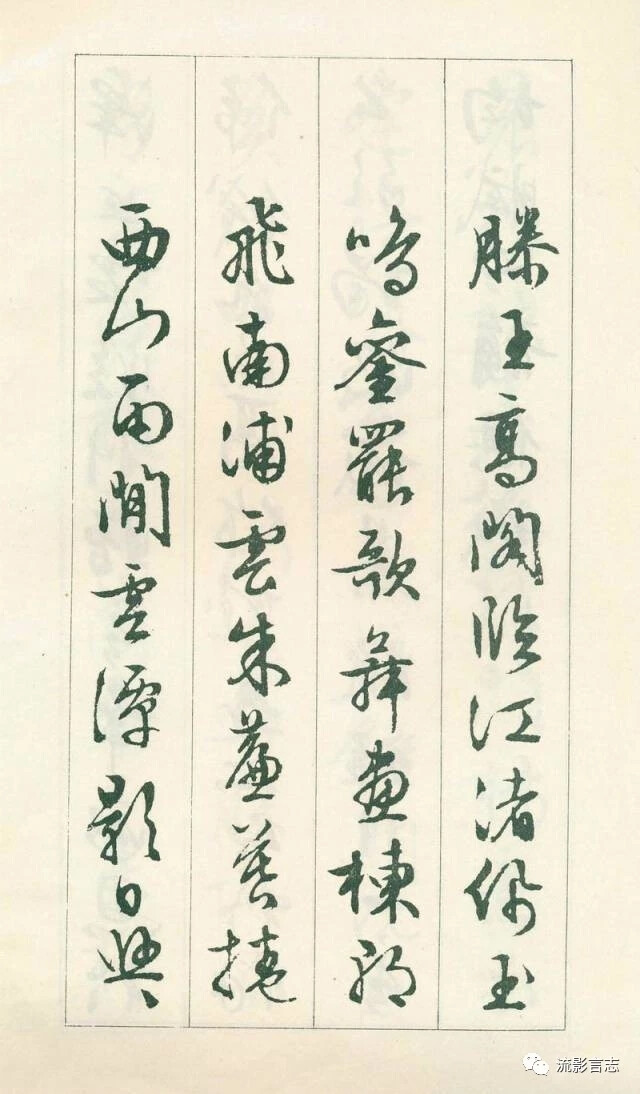 滕王高閣臨江渚佩玉
鳴鑾罷歌舞畫棟朝
飛南浦雲朱簾暮捲
西山雨閒雲潭影日悠
流影言志